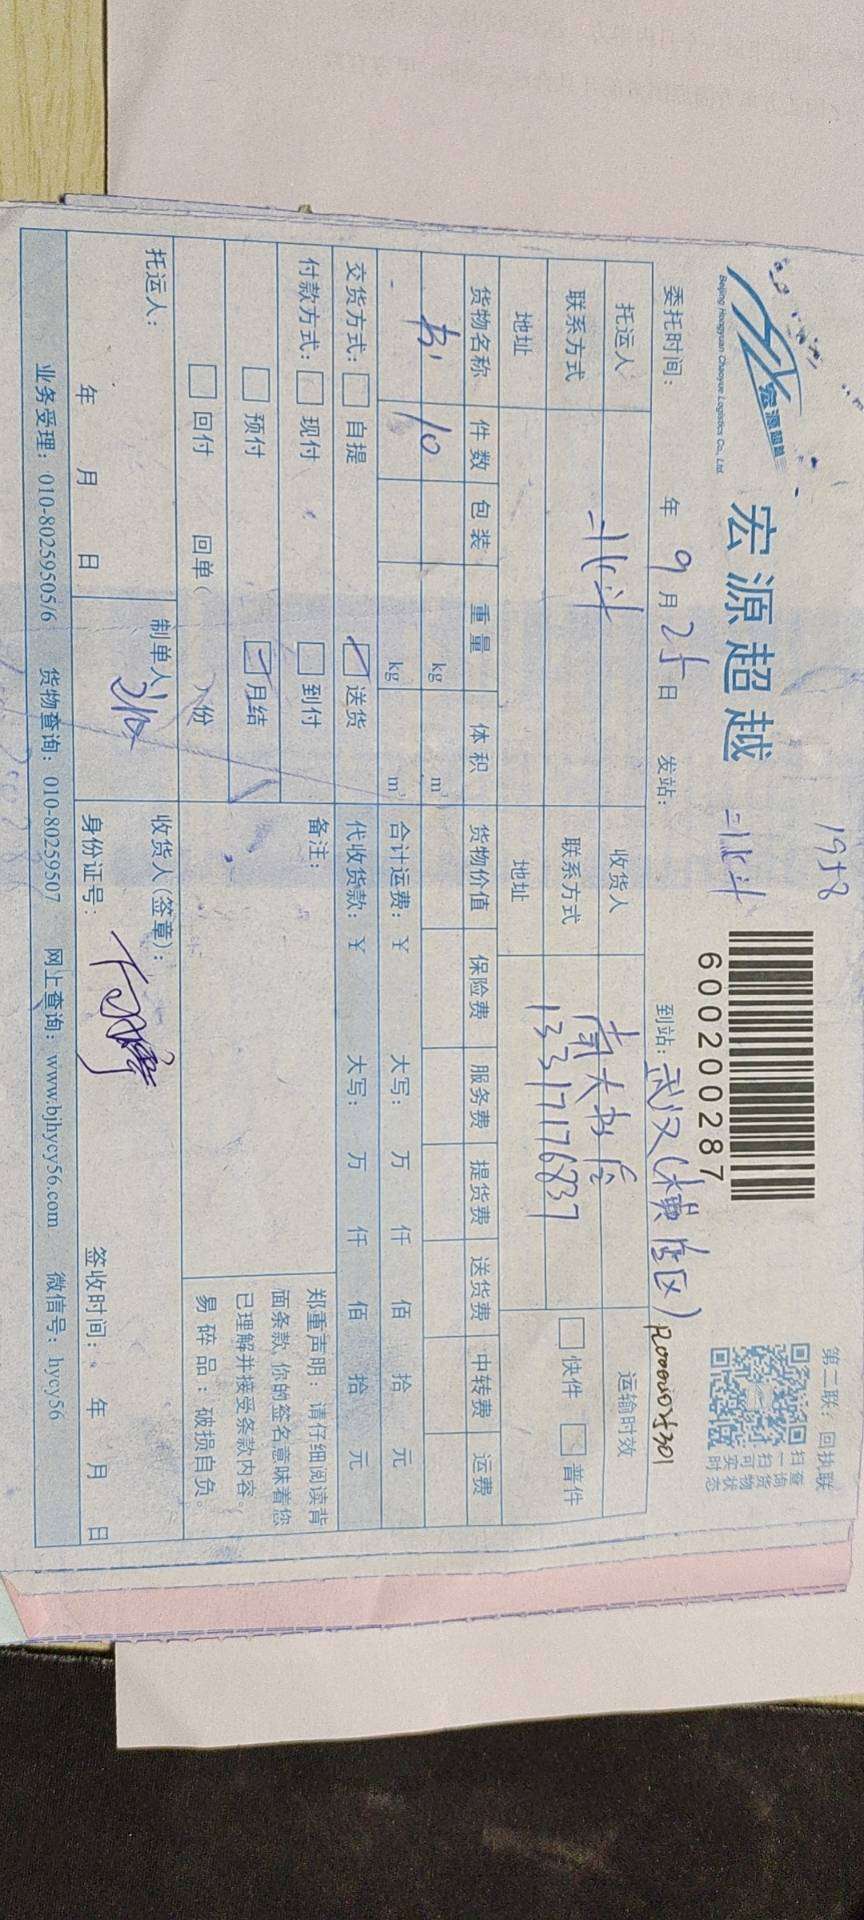 1958
第二联：回执联
宏源超越
Beijing Hongyuan Chaoyue Logistics Co., Ltd.
宏源超越
北斗
600200287
扫一扫可实时
查询货物状态
委托时间： 年 9 月 25 日 发站： 到站：武汉(黄陂区)
托运人 北斗 收货人 南大书店 运输时效
联系方式 联系方式 13317176837 快件 普件
地址 地址
货物名称 件数 包装 重量 体积 货物价值 保险费 服务费 提货费 送货费 中转费 运费
书 10 kg m³
kg m³ 合计运费：￥ 大写： 万 仟 佰 拾 元
交货方式： 自提 送货 代收货款：￥ 大写： 万 仟 佰 拾 元
付款方式： 现付 到付 备注：
预付 月结
回付 回单( )份
郑重声明：请仔细阅读背
面条款,你的签名意味着您
已理解并接受条款内容。
易碎品：破损自负。
托运人： 制单人 收货人(签章)：
年 月 日 身份证号： 签收时间： 年 月 日
业务受理：010-80259505/6 货物查询：010-80259507 网上查询：www.bjhycy56.com 微信号：hycy56